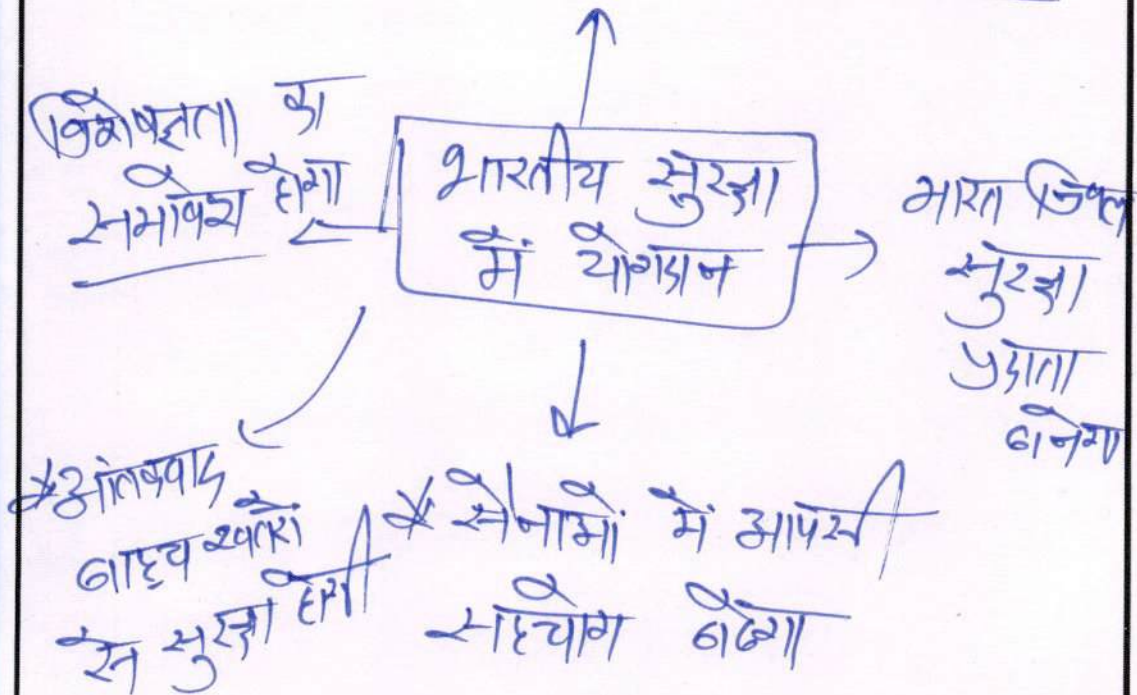 विशेषज्ञता का
समावेश होगा
भारतीय सुरक्षा
में योगदान
भारत
सुरक्षा
प्रदाता
बनेगा
*आंतकवाद
बाह्य खतरों
से सुरक्षा होगी
* सेनाओं में आपसी
सहयोग बढेगा